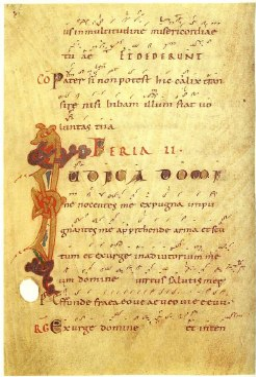 us in multitudine misericordiae
tu ae ET OIDERUNT
CO Pater si non potest hic calix tran
sire nisi bibam illum fiat vo
luntas tua
FERIA II.
IUDICA DOMI
ne nocentes me expugna inpu
gnantes me apprehende arma et scu
tum et exurge in adiutorium me
um domine virtus salutis meę
Effunde frameā
RG Exurge domine et inten